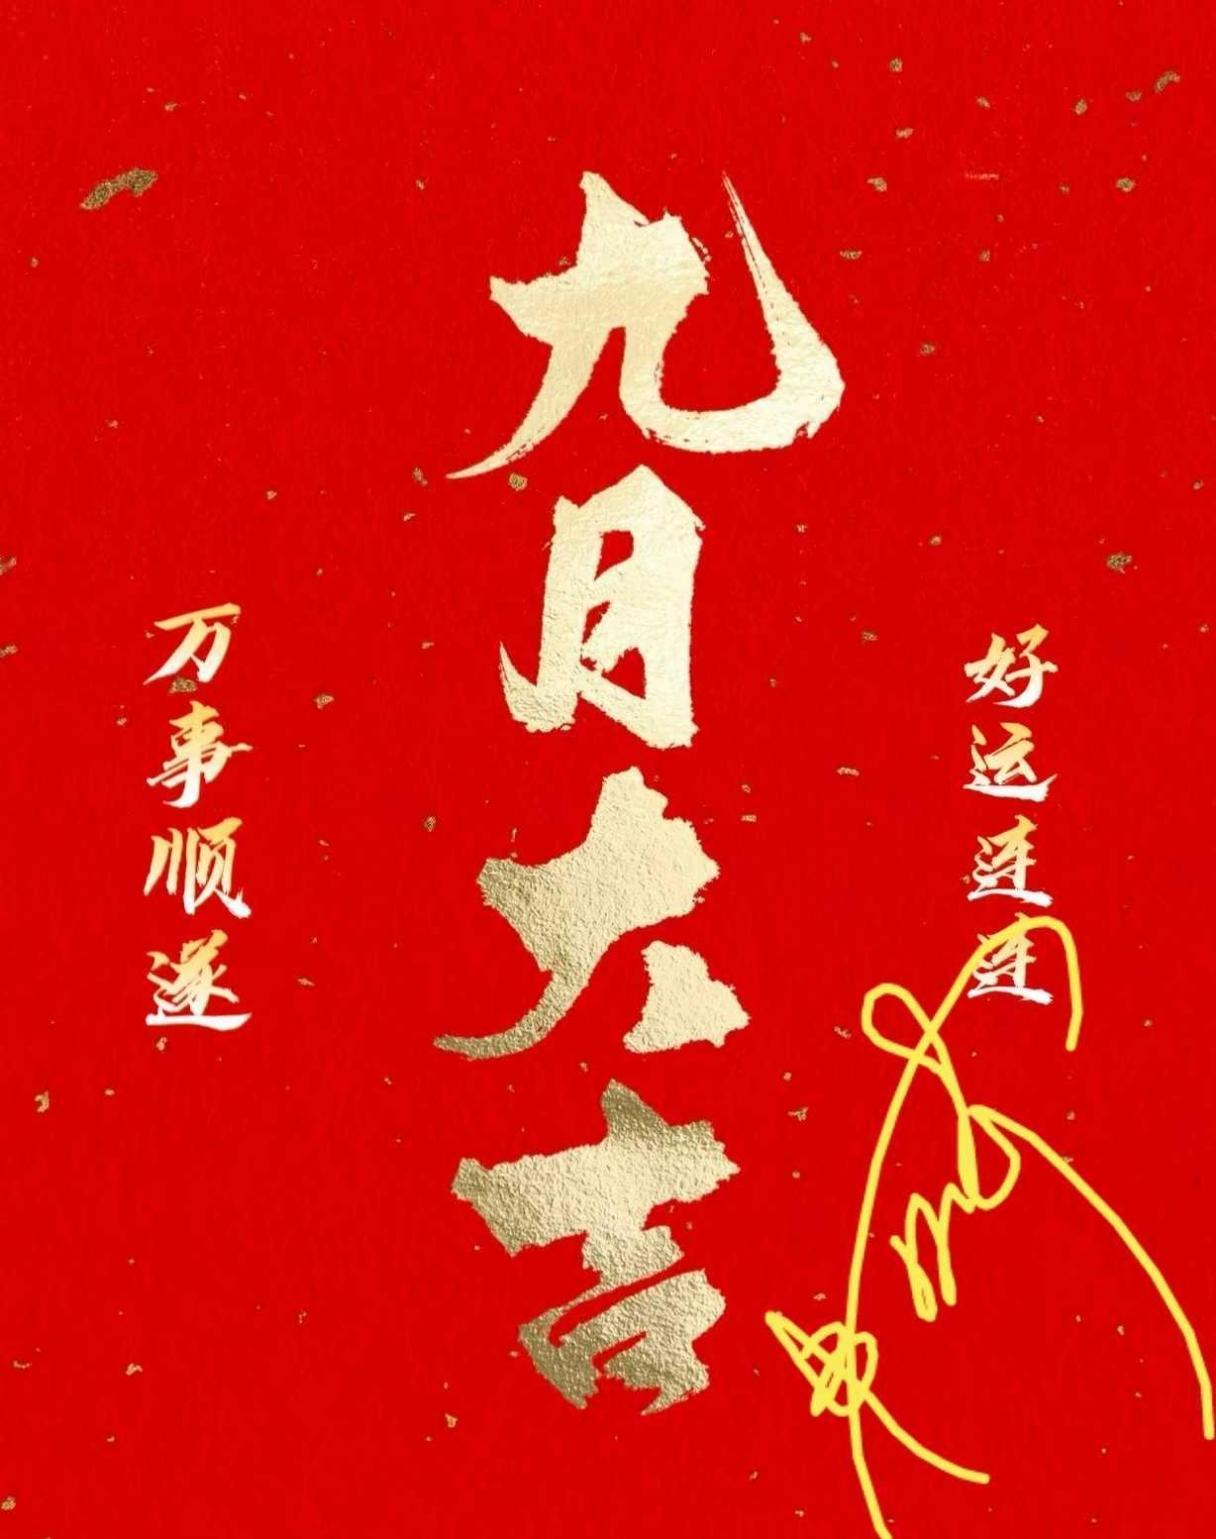 九月大吉
好运连连
万事顺遂